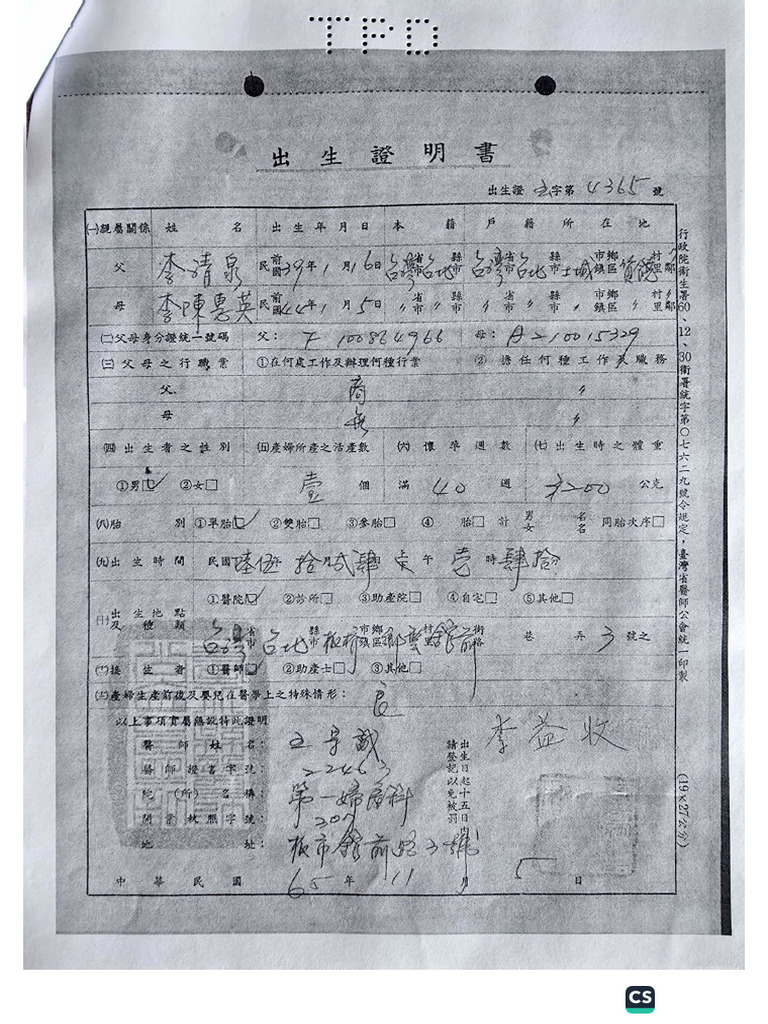 TPD
出生證明書
出生證 字第 4365 號
㈠親屬關係 姓名 出生年月日 本籍 戶籍所在地
父 李清泉 民前國 39年1月16日 台灣省市台北縣市 台灣省市台北縣市土城市鄉鎮區 村里鄰
母 李陳惠英 民前國 44年1月5日 〃省市 〃縣市 〃省市 〃縣市 〃市鄉鎮區 〃村里鄰
㈡父母身分證統一號碼 父: F 100864966 母: A210015329
㈢父母之行職業 ①在何處工作及辦理何種行業 ②擔任何種工作及職務
父 商 〃
母 無 〃
㈣出生者之性別 ㈤產婦所產之活產數 ㈥懷孕週數 ㈦出生時之體重
①男☑ ②女□ 壹 個 滿 40 週 3200 公克
㈧胎別 ①單胎☑ ②雙胎□ ③參胎□ ④ 胎□ 計 男 名 女 名 同胎次序□
㈨出生時間 民國陸伍 拾 貳 肆 午 壹 時 肆拾分
㈩出生地點及種類 ①醫院☑ ②診所□ ③助產院□ ④自宅□ ⑤其他□
台灣省市 台北縣市 板橋市鄉鎮區 村里 館前街路 巷 弄 3 號之
接生者 ①醫師☑ ②助產士□ ③其他□
產婦生產前後及嬰兒在醫學上之特殊情形: 良
以上事項實屬無訛特此證明
醫師姓名:
醫師證書字號: 22463
院(所)名稱: 第一婦產科
開業執照字號: 207
地址: 板市館前路3號
出生日起十五日內
請登記以免被罰
李益收
中華民國 65 年 11 月 5 日
行政院衛生署60、12、30衛署統字第〇七六二九號令規定，臺灣省醫師公會統一印製
(19×27公分)
CS